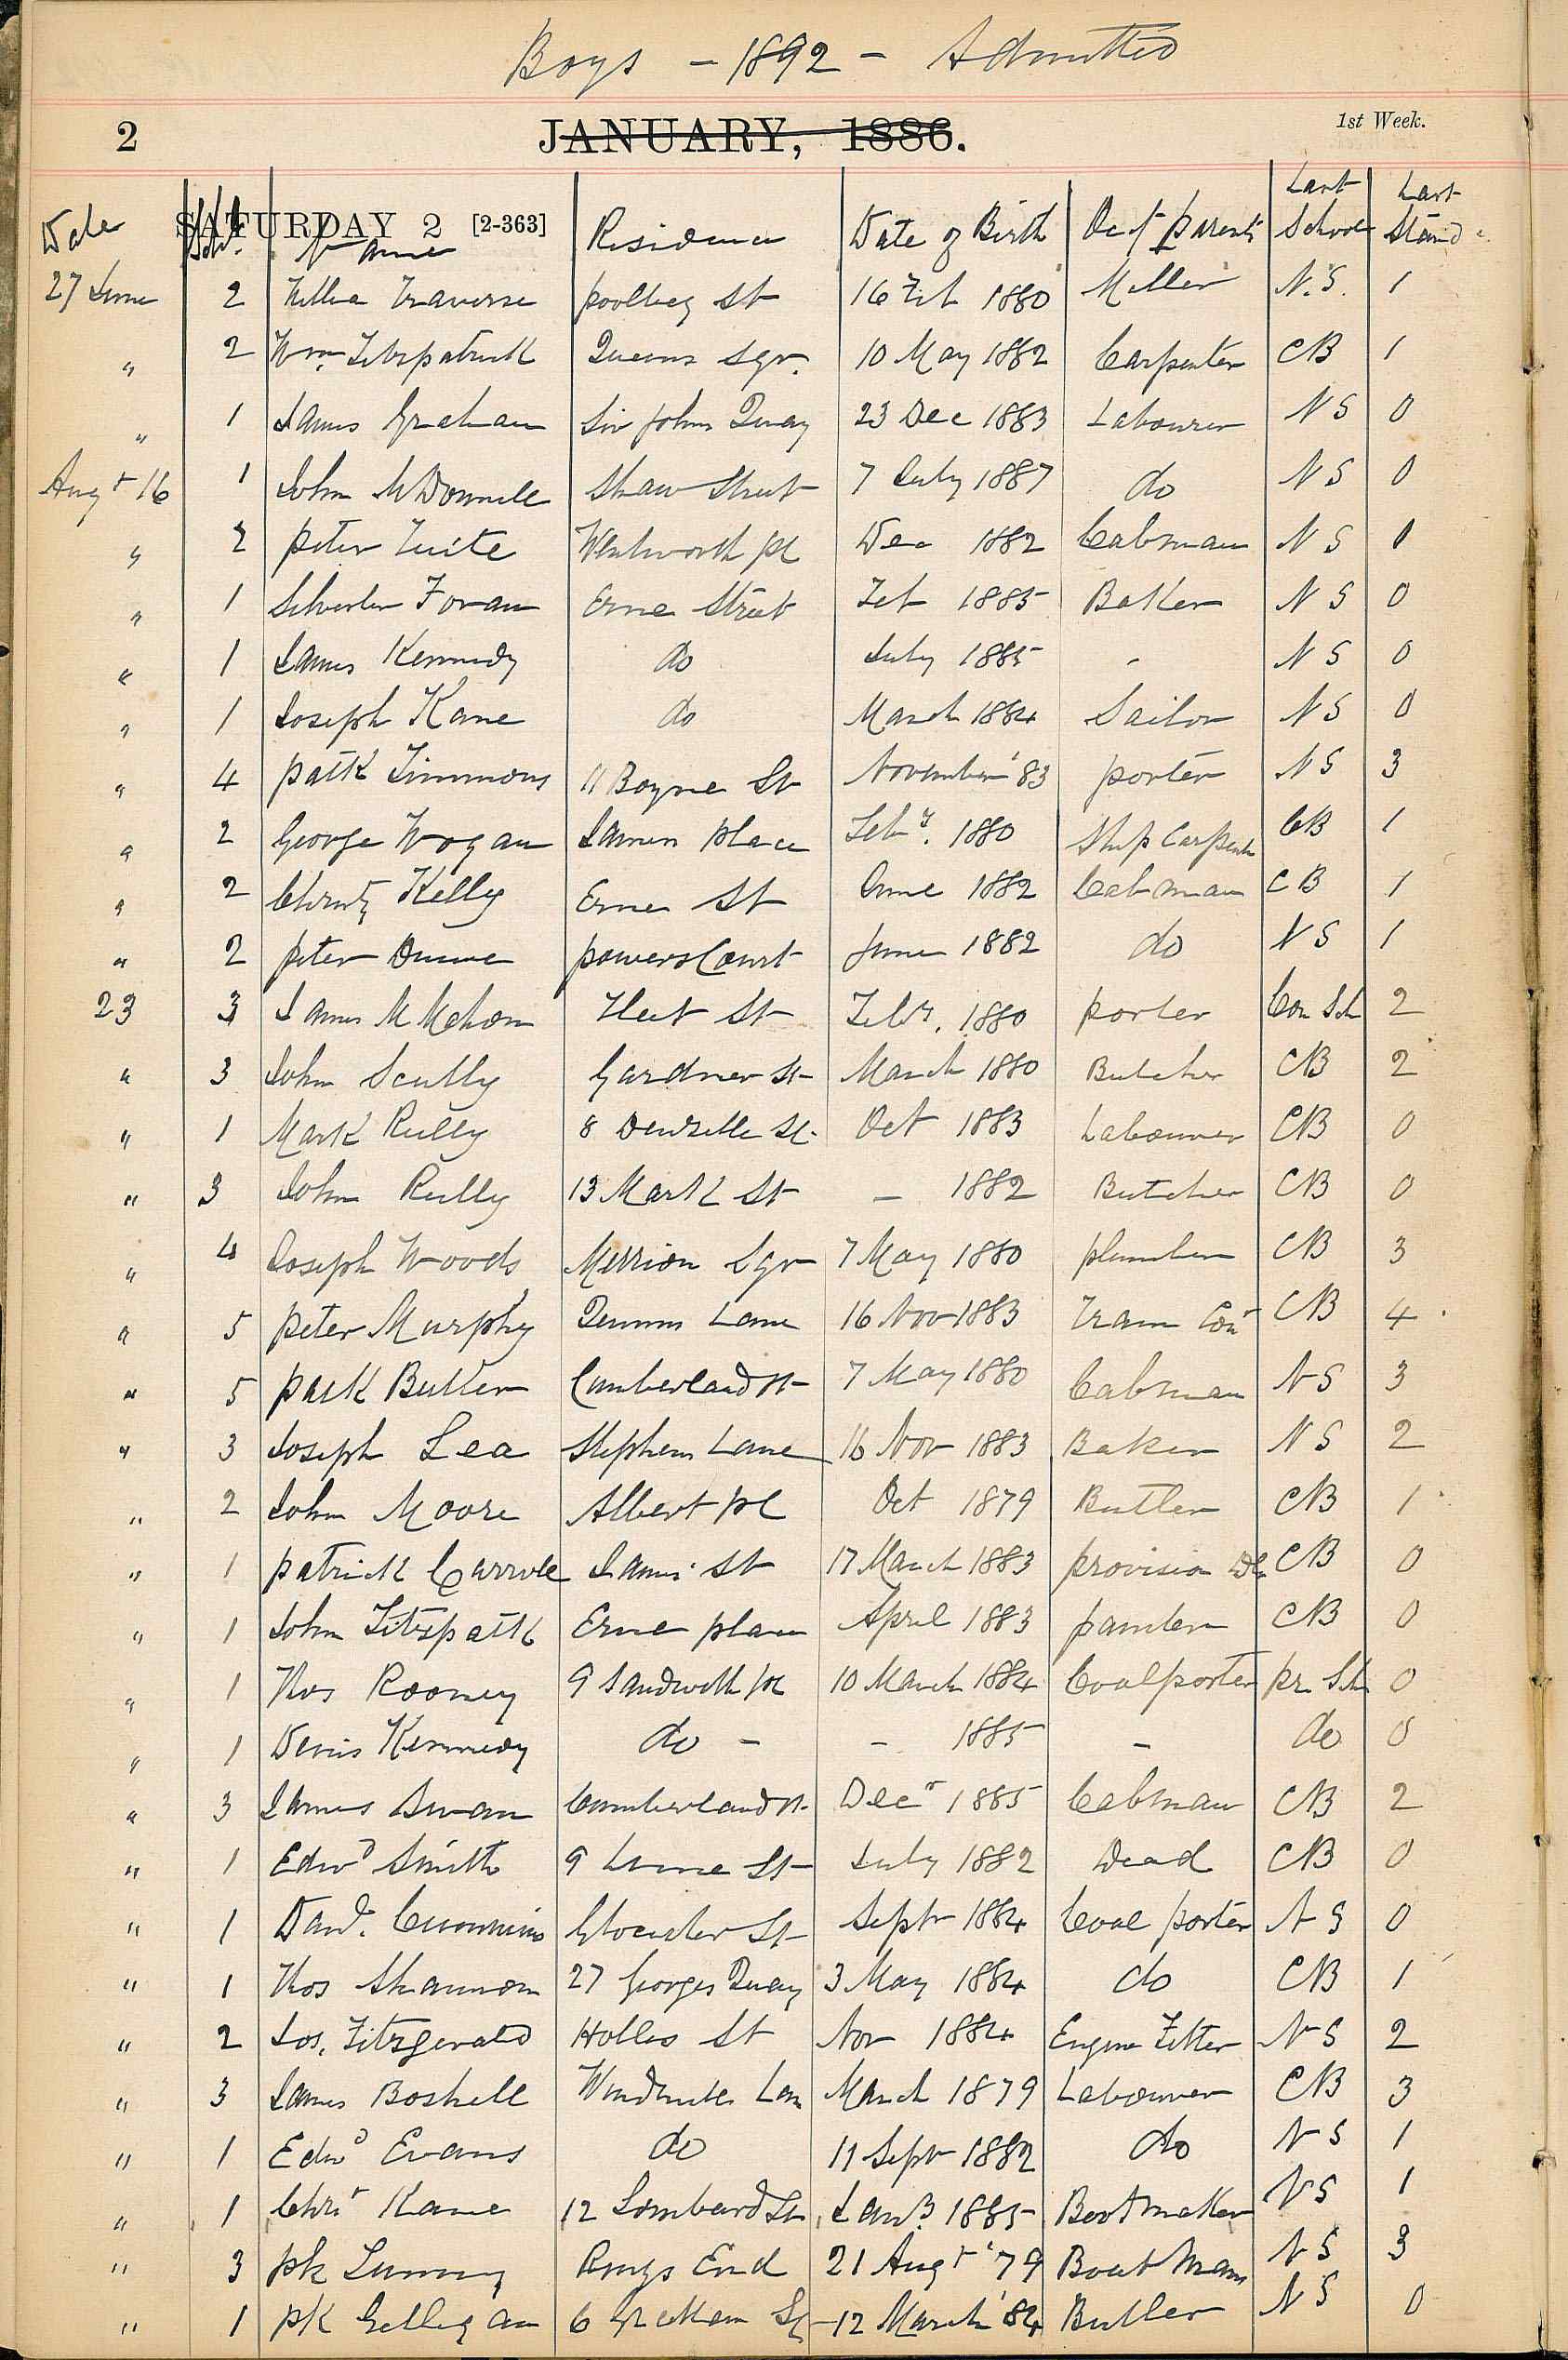 Boys - 1892 - Admitted
2 JANUARY, 1886. 1st Week.
SATURDAY 2 [2-363]
Date Std. Name Residence Date of Birth Oc of parents Last School Last Stand
27 June 2 Traverse poolbeg St 16 Feb 1880 Miller N.S. 1
" 2 Wm. Fitzpatrick Queens Sqr. 10 May 1882 Carpenter CB 1
" 1 James Graham Sir Johns Quay 23 Dec 1883 Labourer NS 0
Augt 16 1 John McDonnell Shaw Street 7 July 1887 do NS 0
" 2 peter Tuite Wentworth pl Dec 1882 Cabman NS 1
" 1 Silvester Foran Erne Street Feb 1885 Baker NS 0
" 1 James Kennedy do July 1885 - NS 0
" 1 Joseph Kane do March 1884 Sailor NS 0
" 4 patk Timmons 11 Boyne St November '83 porter NS 3
" 2 George Wogan James place Feby. 1880 Ship Carpenter CB 1
" 2 Christy Kelly Erne St June 1882 Cabman CB 1
" 2 peter Dunne powers Court June 1882 do NS 1
23 3 James McMahon Fleet St Feby. 1880 porter Con Sch 2
" 3 John Scully Gardner St March 1880 Butcher CB 2
" 1 Mark Reilly 8 Denzille St. Oct 1883 Labourer CB 0
" 3 John Reilly 13 Mark St - 1882 Butcher CB 0
" 4 Joseph Woods Merrion Sqr 7 May 1880 plumber CB 3
" 5 peter Murphy Lane 16 Nov 1883 Tram Con CB 4
" 5 patk Butler Cumberland St 7 May 1880 Cabman NS 3
" 3 Joseph Lea Stephens Lane 16 Nov 1883 Baker NS 2
" 2 John Moore Albert pl Oct 1879 Butler CB 1
" 1 patrick Carroll James St 17 March 1883 provision Dlr CB 0
" 1 John Fitzpatk Erne place April 1883 painter CB 0
" 1 Thos Rooney 9 Sandwith pl 10 March 1884 Coalporter pr. Sch 0
" 1 Denis Kennedy do - - 1885 - do 0
" 3 James Swan Cumberland St. Decr 1885 Cabman CB 2
" 1 Edwd Smith 9 St July 1882 Dead CB 0
" 1 Davd. Cummins Glocester St Septr 1884 Coal porter NS 0
" 1 Thos Shannon 27 Georges Quay 3 May 1884 do CB 1
" 2 Jos. Fitzgerald Holles St Nov 1884 Engine Fitter NS 2
" 3 James Boshell Windmill Lan March 1879 Labourer CB 3
" 1 Edwd Evans do 11 Sept 1882 do NS 1
" 1 Chrisr Kane 12 Lombard St 1885 Bootmaker NS 1
" 3 pk Rings End 21 Augt '79 Boat Man NS 3
" 1 pk Gilligan 6 Graham St 12 March '84 Butler NS 0